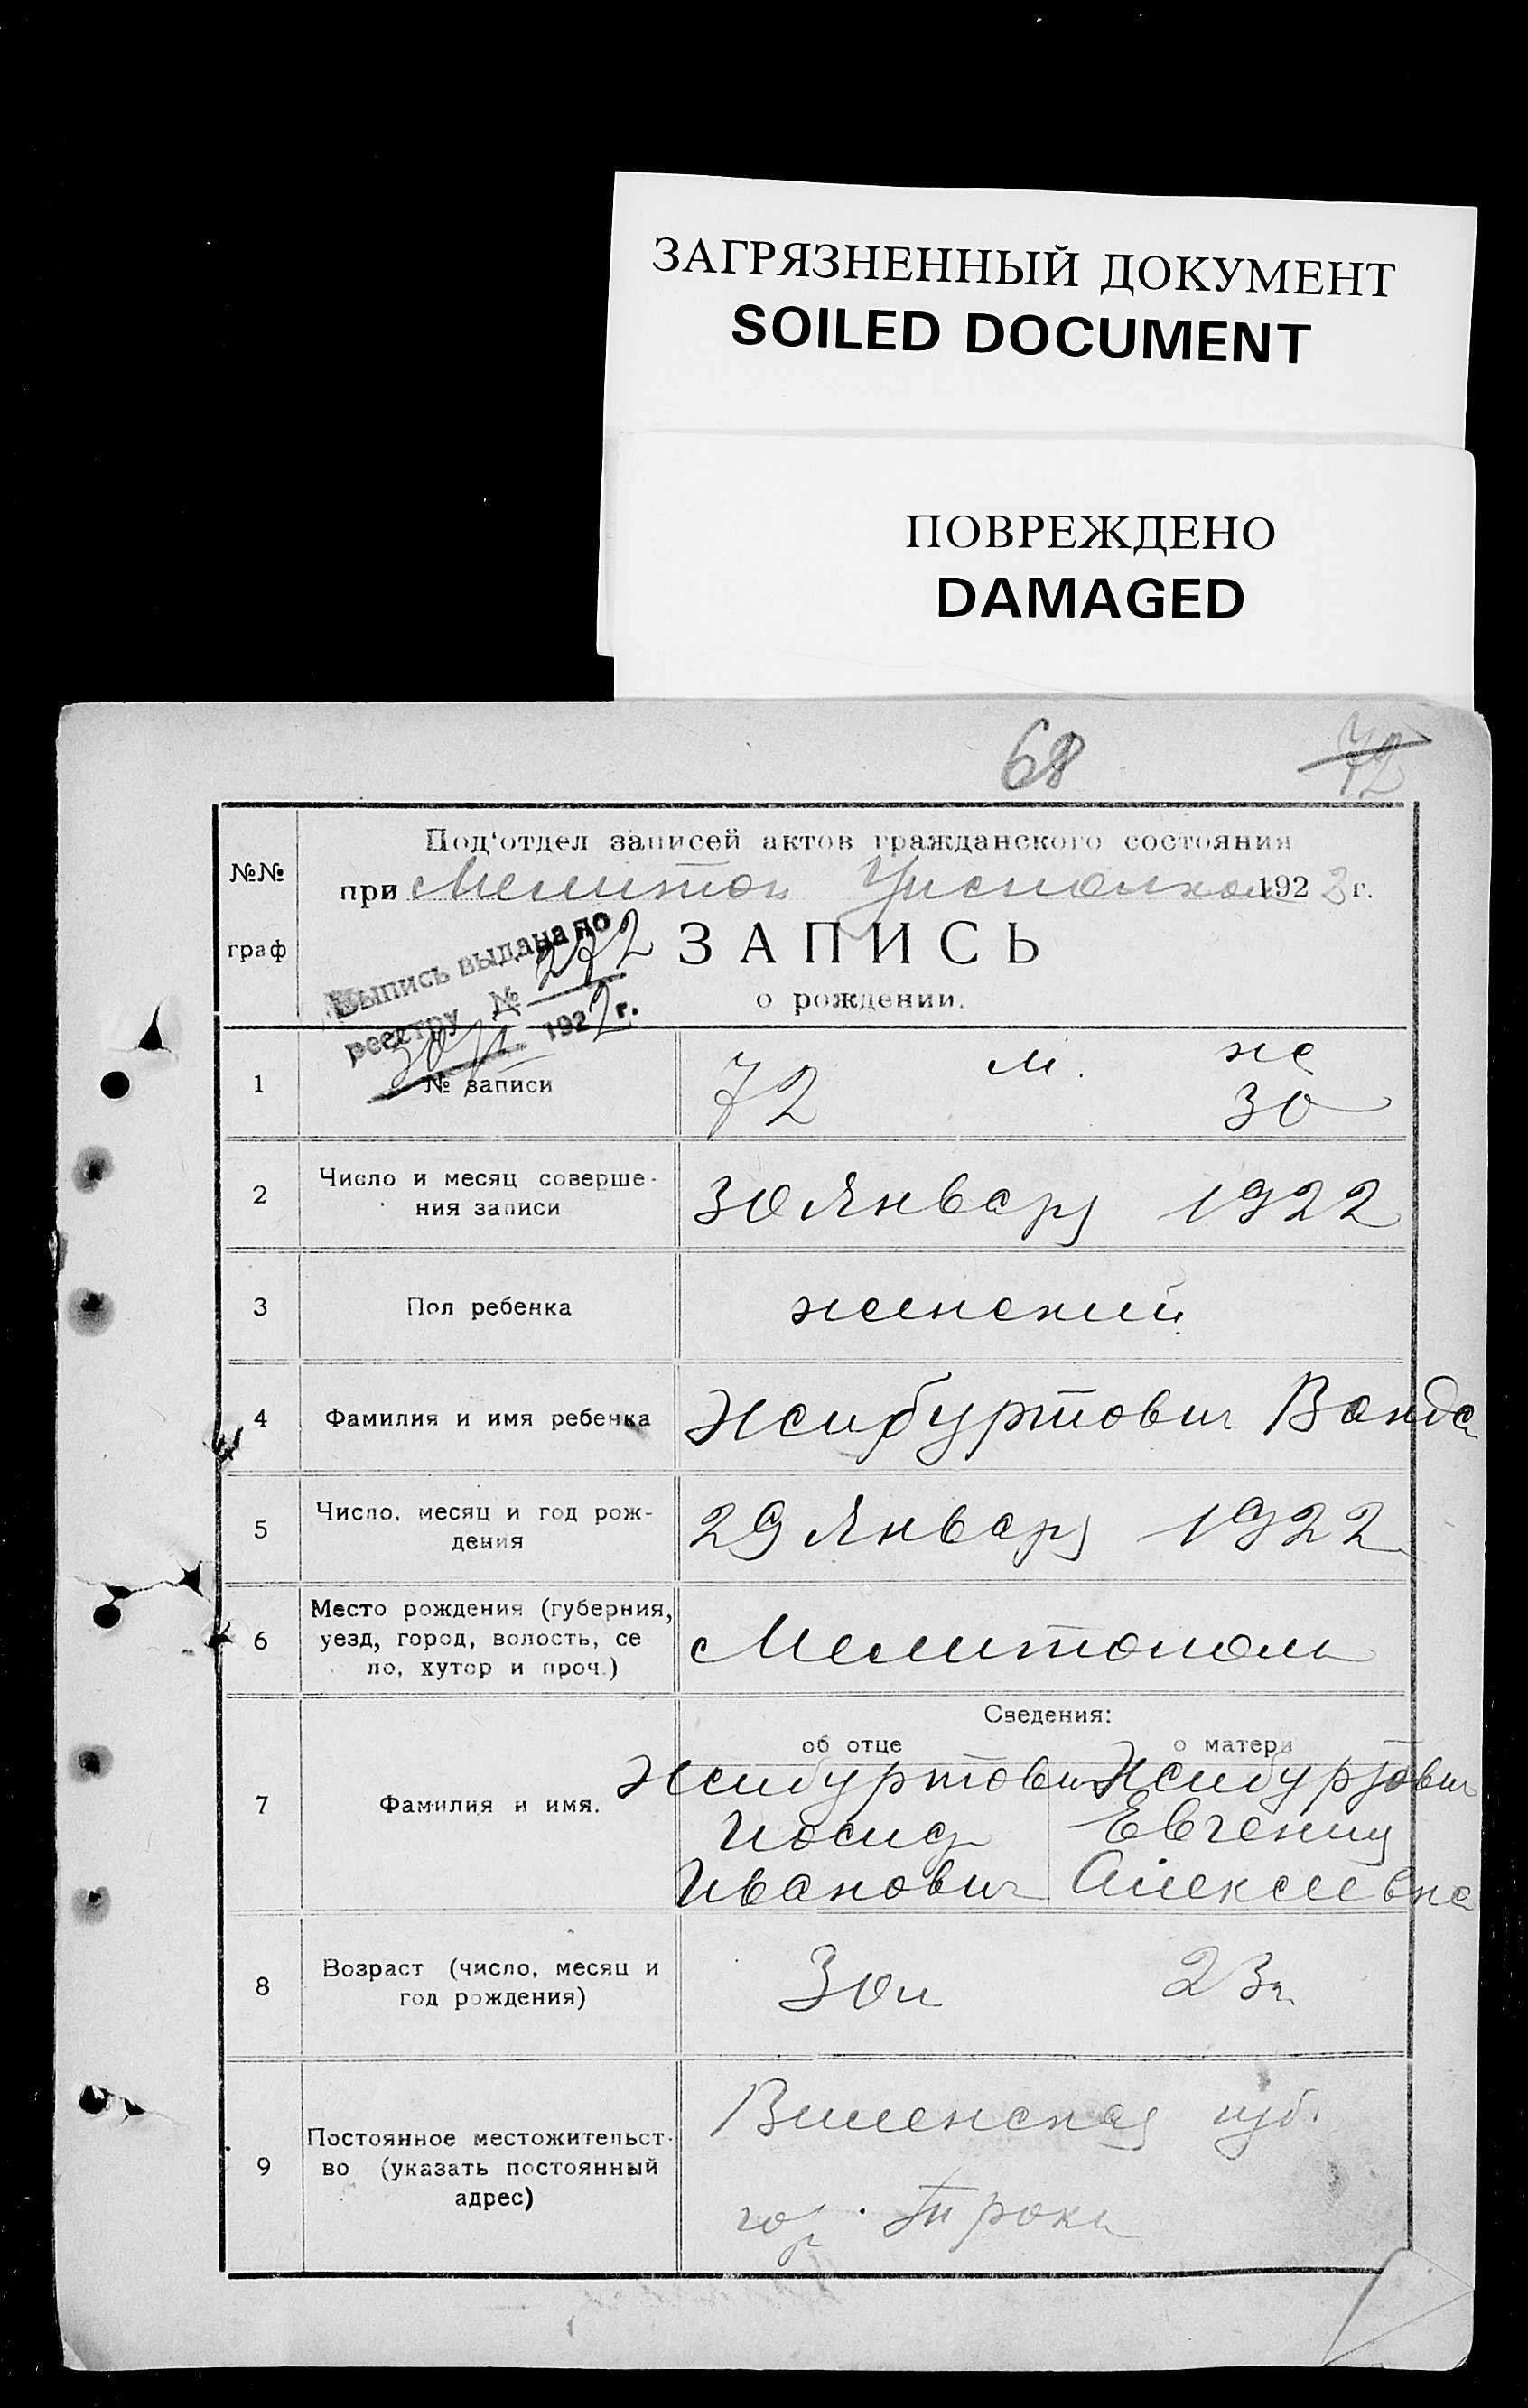 ЗАГРЯЗНЕННЫЙ ДОКУМЕНТ
SOILED DOCUMENT
ПОВРЕЖДЕНО
DAMAGED
68 72
№№ граф
Под'отдел записей актов гражданского состояния
при Мелитоп Уисполкоме 1922 г.
ЗАПИСЬ
о рождении.
Выпись выдана по
реестру № 272
30/I 1922 г.
1 № записи 72 м. ж 30
2 Число и месяц соверше-
ния записи 30 Января 1922
3 Пол ребенка женский
4 Фамилия и имя ребенка Жибуртович Ванда
5 Число, месяц и год рож-
дения 29 Января 1922
6 Место рождения (губерния,
уезд, город, волость, се
ло, хутор и проч.) Мелитополь
Сведения:
об отце о матери
7 Фамилия и имя. Жибуртович Жибуртович
Иосиф Евгения
Иванович Алексеевна
8 Возраст (число, месяц и
год рождения) 30 л 23 г.
9 Постоянное местожительст-
во (указать постоянный
адрес) Виленская губ.
гор. Троки